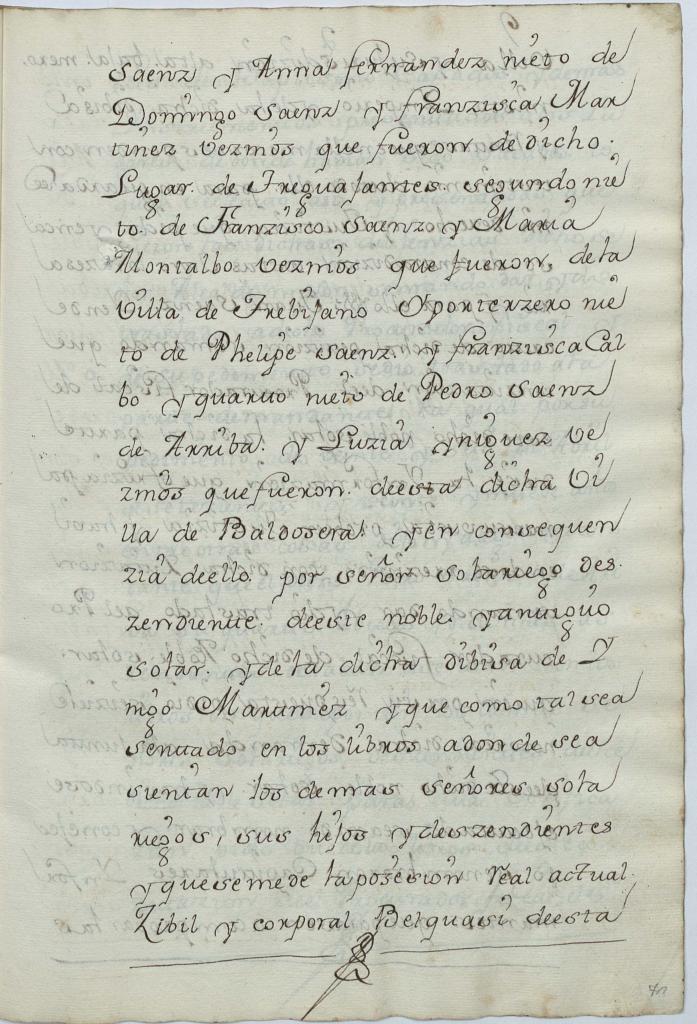 Saenz y Anna fernandez, nieto de
Domingo Saenz y franzisca Mar
tinez vezinos que fueron de dicho.
Lugar. de Treguajantes. segundo nie
to. de Franzisco Saenz y Maria
Montalbo vezinos que fueron, de la
villa de Trebijano Y por terzero nie
to de Phelipe Saenz. y franzisca Cal
bo y quarto nieto de Pedro Saenz
de Arriba. y Luzia yniguez ve
zinos que fueron. de esta dicha Vi
lla de Baldosera. y en consequen
zia de ello. por señor solariego des.
zendiente. de este noble. y antiguo
solar. y de la dicha dibisa de Y
ñigo Martinez y que como tal sea
sentado en los libros adonde sea
sientan los demas señores sola
riegos, sus hijos y deszendientes
y que se me de la posesion real actual.
Zibil y corporal Bel quasi de esta